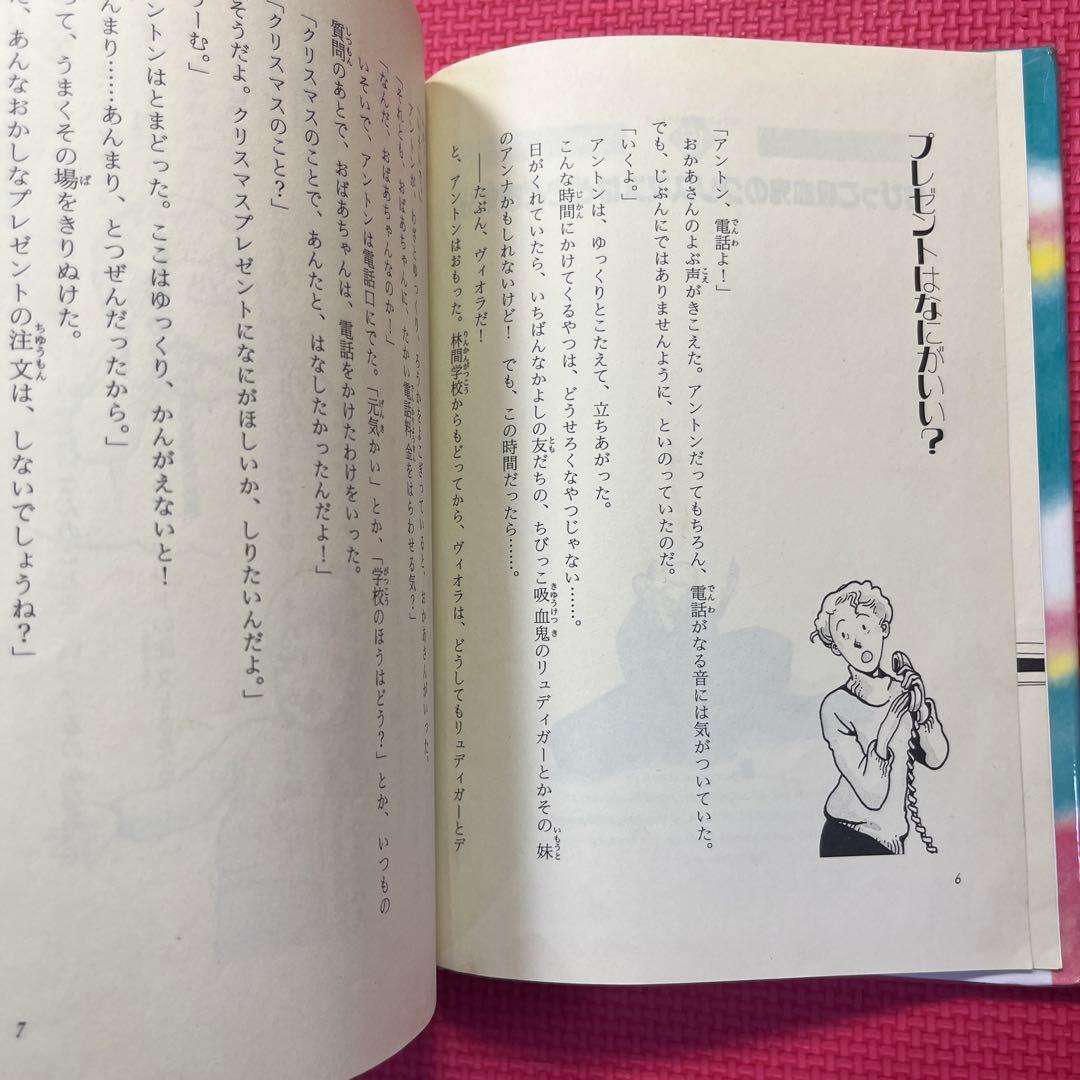 プレゼントはなにがいい？
「アントン、電話よ！」
おかあさんのよぶ声がきこえた。アントンだってもちろん、電話がなる音には気がついていた。
でも、じぶんにではありませんように、といのっていたのだ。
「いくよ。」
アントンは、ゆっくりとこたえて、立ちあがった。
こんな時間にかけてくるやつは、どうせろくなやつじゃない……。
日がくれていたら、いちばんなかよしの友だちの、ちびっこ吸血鬼のリュディガーとかその妹
のアンナかもしれないけど！　でも、この時間だったら……。
――たぶん、ヴィオラだ！
と、アントンはおもった。林間学校からもどってから、ヴィオラは、どうしてもリュディガーとデ
6
アントンが、わざとゆっくり、ろうかをよこぎっていると、おかあさんがいった。
「それとも、おばあちゃんに、たかい電話料金をはらわせる気？」
「なんだ、おばあちゃんなのか！」
いそいで、アントンは電話口にでた。「元気かい」とか、「学校のほうはどう？」とか、いつもの
質問のあとで、おばあちゃんは、電話をかけたわけをいった。
「クリスマスのことで、あんたと、はなしたかったんだよ！」
「クリスマスのこと？」
そうだよ。クリスマスプレゼントになにがほしいか、しりたいんだよ。」
ーむ。」
ントンはとまどった。ここはゆっくり、かんがえないと！
んまり……あんまり、とつぜんだったから。」
って、うまくその場をきりぬけた。
、あんなおかしなプレゼントの注文は、しないでしょうね？」
7